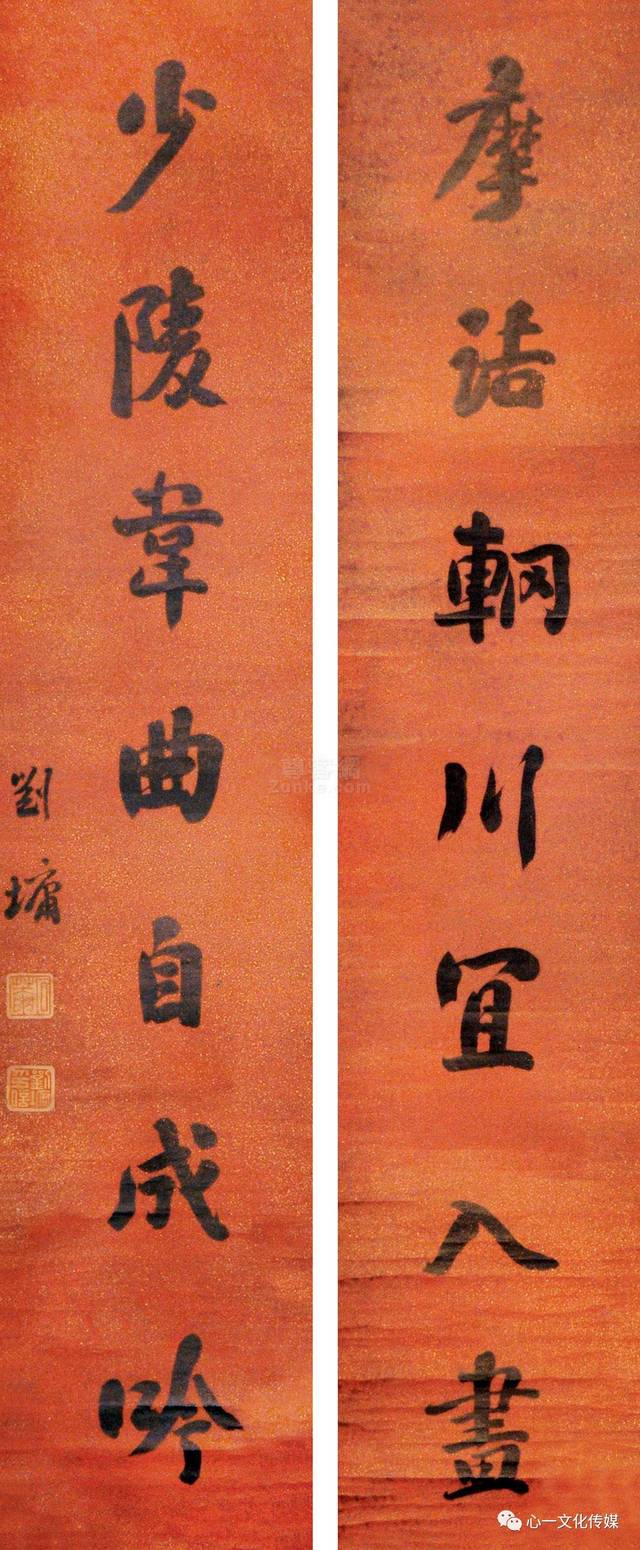 摩詰輞川宜入畫
少陵韋曲自成吟
劉墉
心一文化传媒